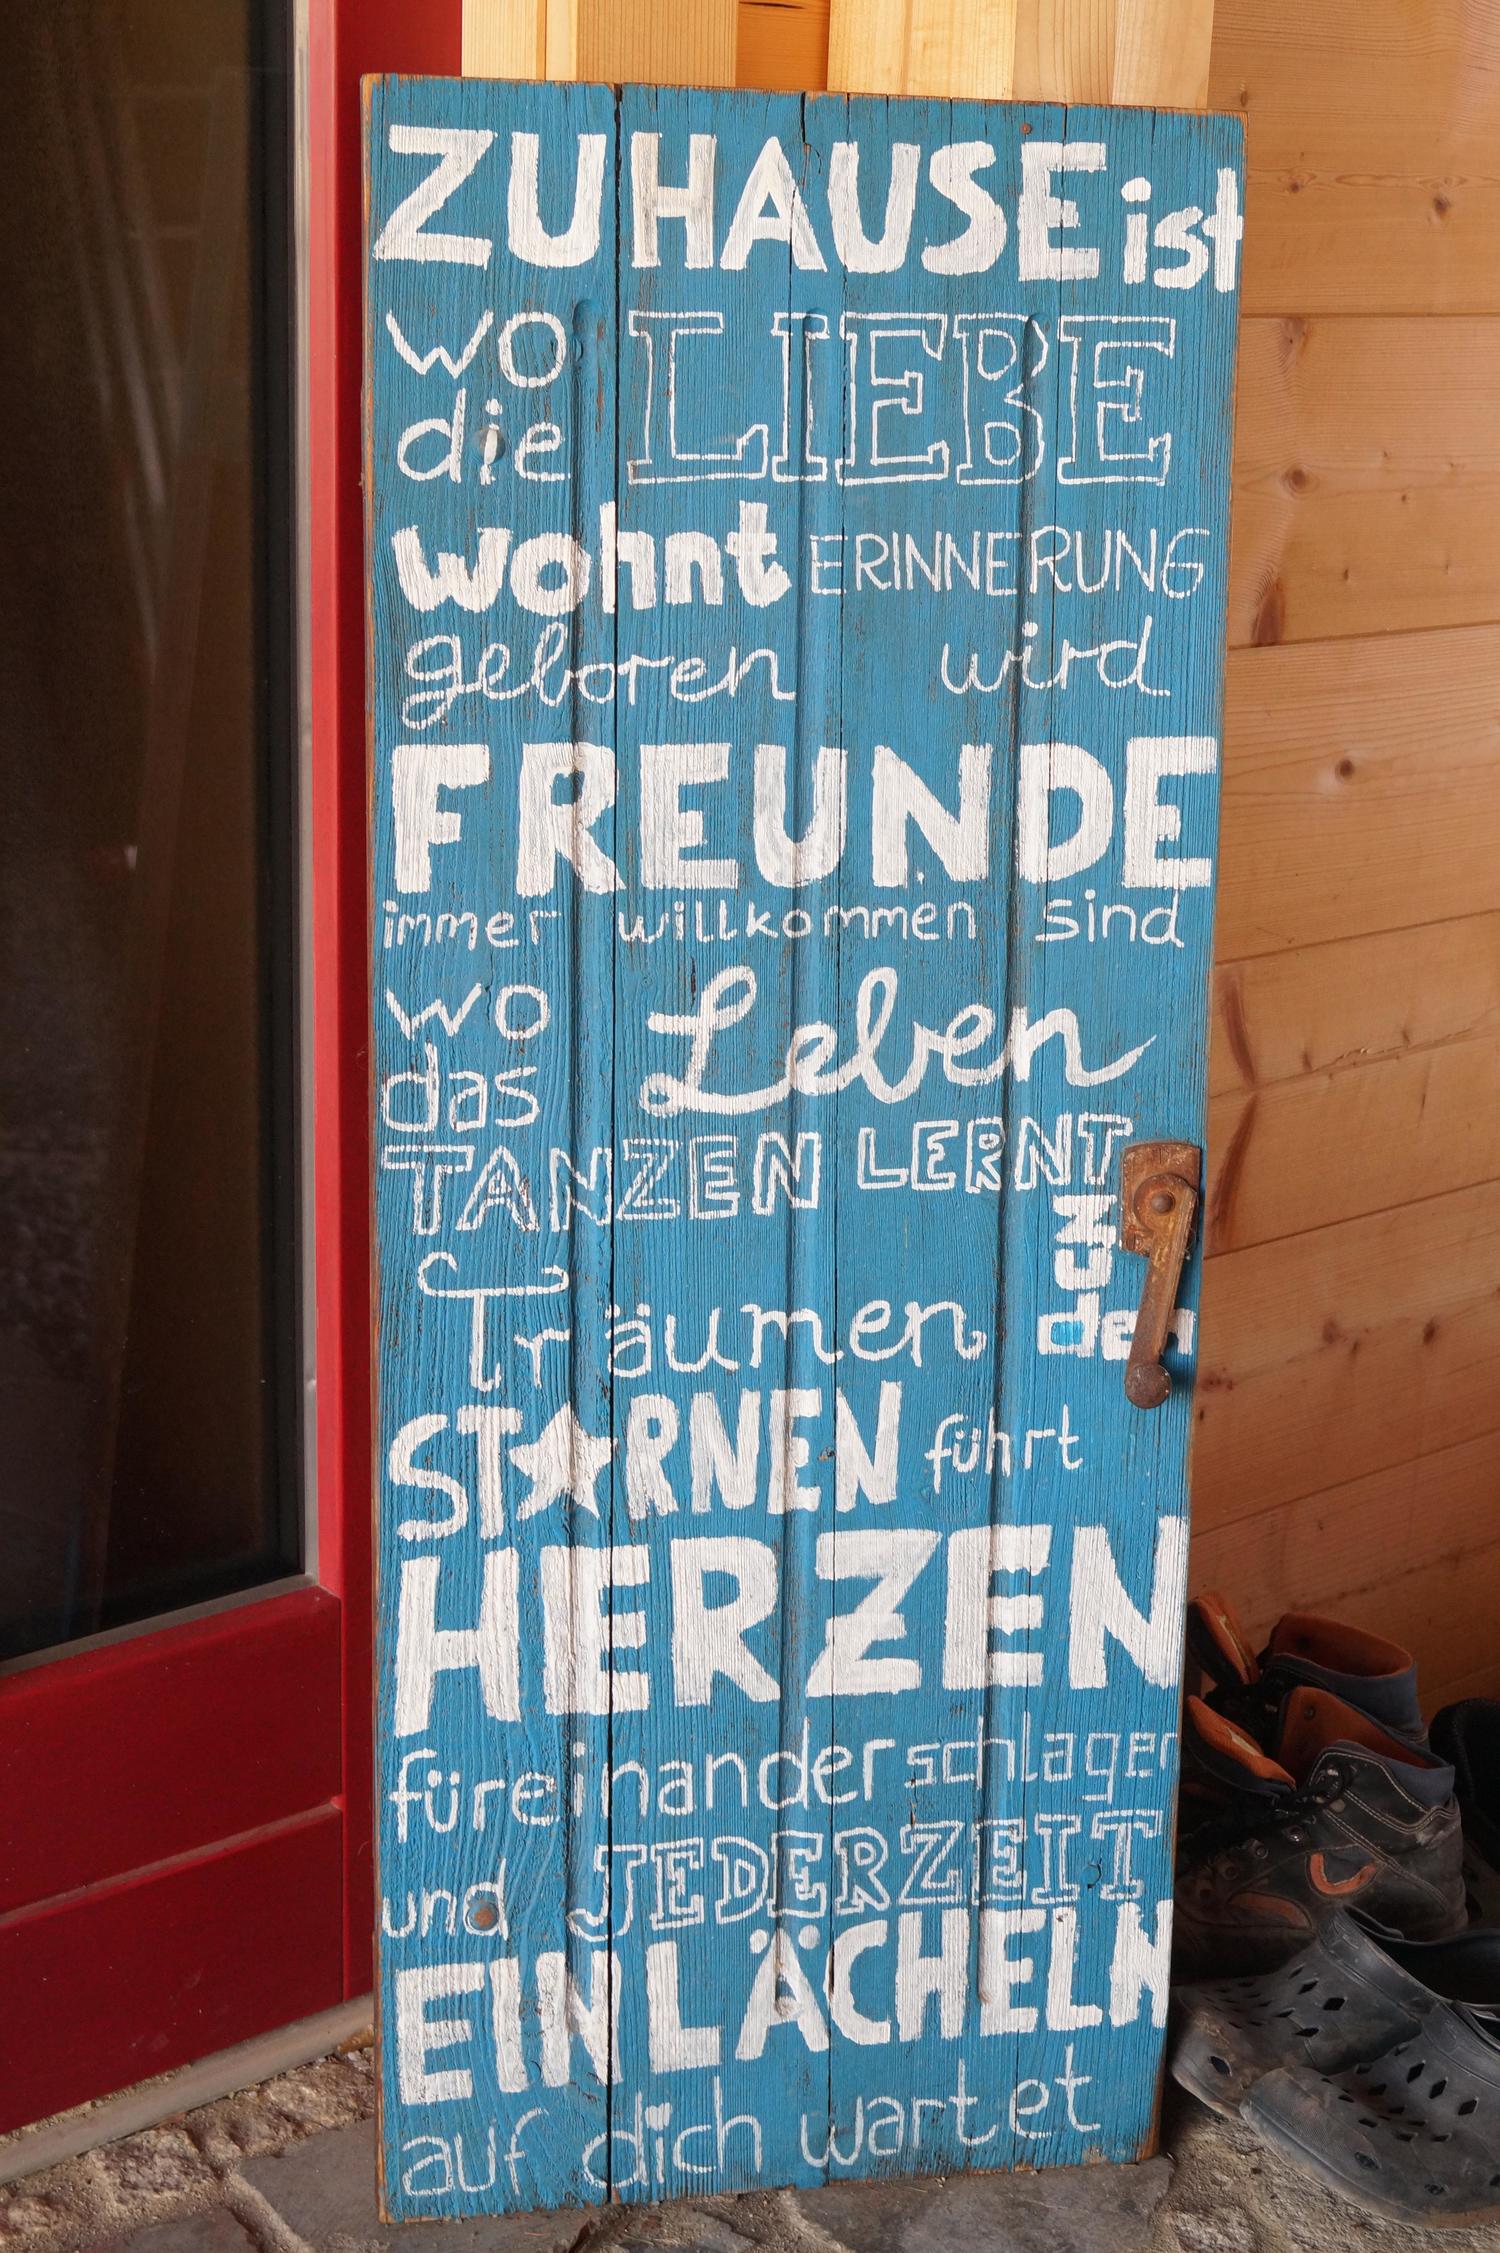 ZUHAUSE ist
wo
die LIEBE
wohnt ERINNERUNG
geboren wird
FREUNDE
immer willkommen sind
wo
das Leben
TANZEN LERNT
Träumen zu
den
ST★RNEN führt
HERZEN
füreinander schlagen
und JEDERZEIT
EIN LÄCHELN
auf dich wartet